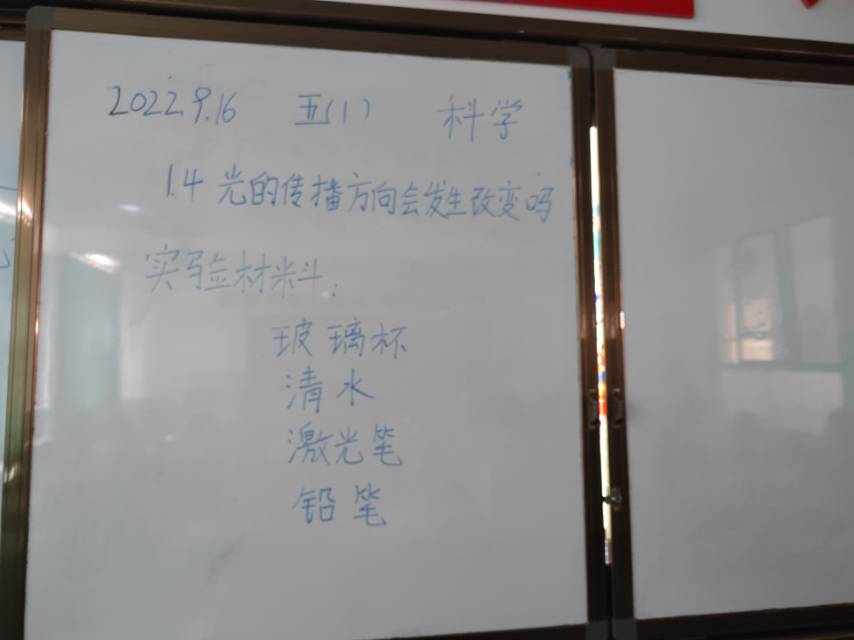 2022.9.16 五(1) 科学
1.4 光的传播方向会发生改变吗
实验材料:
玻璃杯
清水
激光笔
铅笔